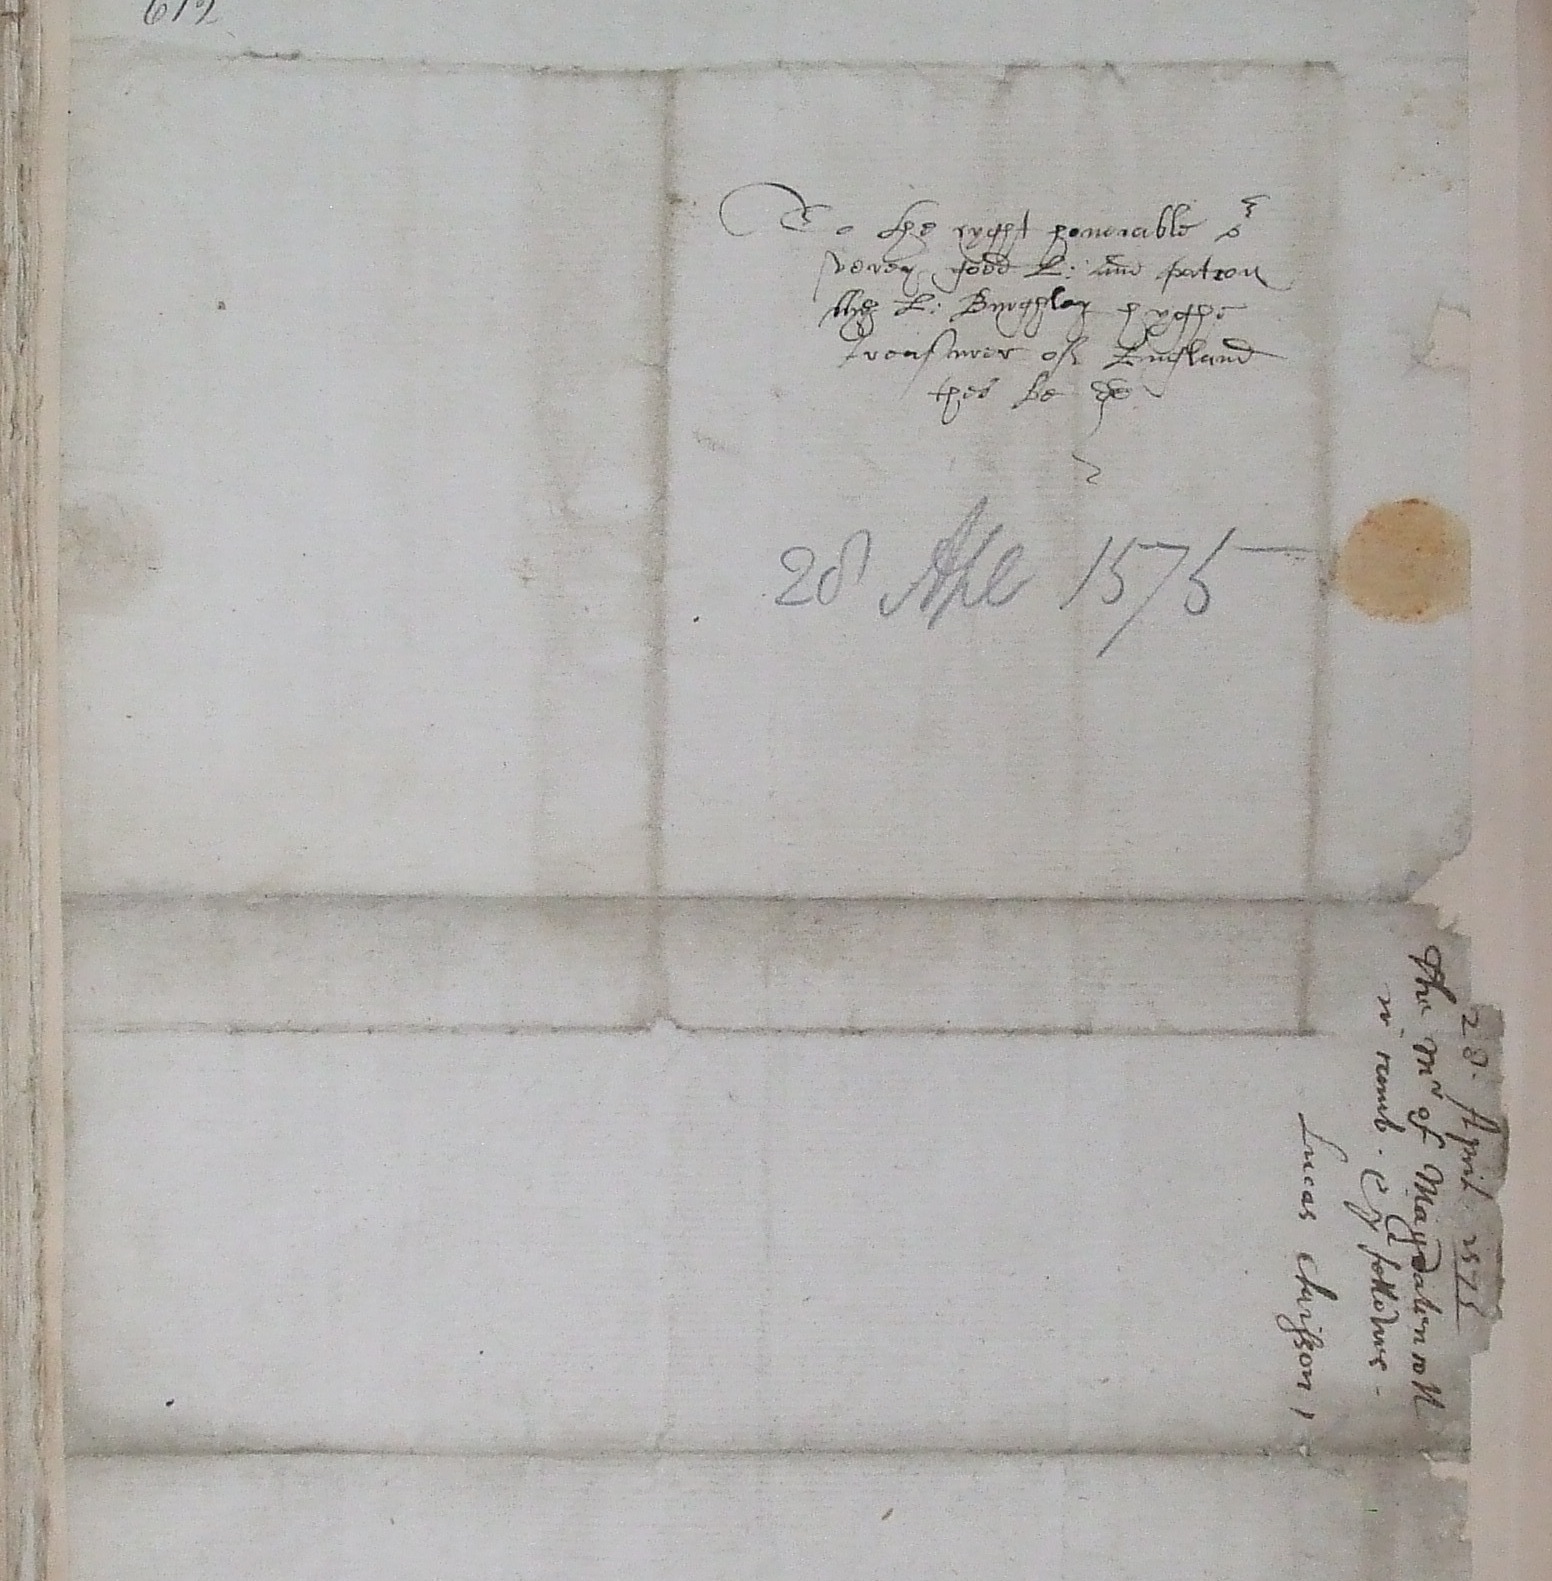 To the ryght honorable &
verey good L: and patron
the L: Burghley hyghe
treasurer off England
thes be dd
28 Apl 1575
28. April 1575
The Mr of Magdalen coll
in camb. & ye fellows -
Lucas